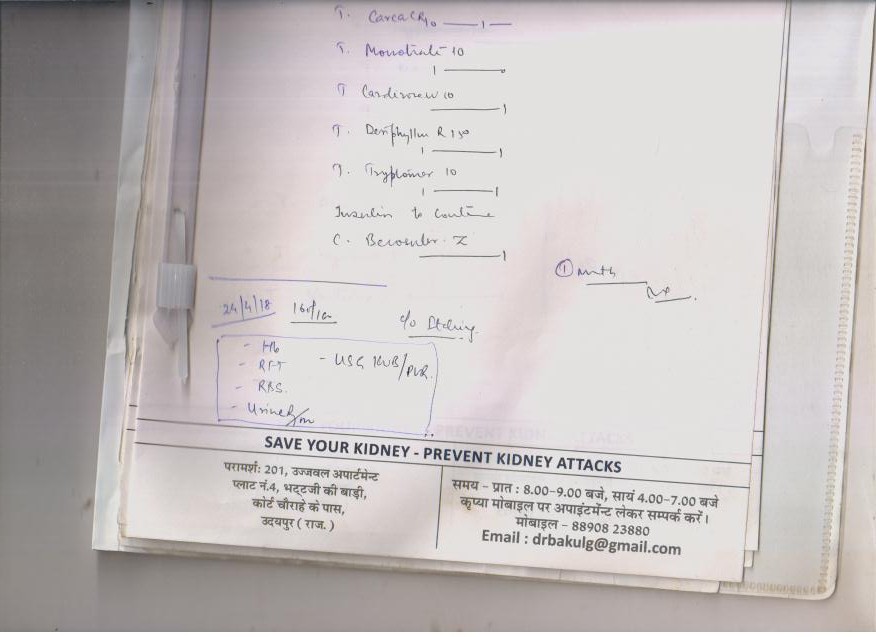 T.
1
T. Monotrate 10
1
T Cardivas 10
1
T. Deriphyllin R 150
1 1
T. Tryptomer 10
1 1
Insulin to continue
C. Becosules-Z
1
① month
24/4/18 c/o Itching
- Hb
- RFT - USG KUB/PVR.
- RBS.
- Urine R/m
SAVE YOUR KIDNEY - PREVENT KIDNEY ATTACKS
परामर्श: 201, उज्जवल अपार्टमेन्ट
प्लाट नं.4, भट्टजी की बाड़ी,
कोर्ट चौराहे के पास,
उदयपुर ( राज. )
समय - प्रात : 8.00-9.00 बजे, सायं 4.00-7.00 बजे
कृप्या मोबाइल पर अपाइंटमेन्ट लेकर सम्पर्क करें।
मोबाइल - 88908 23880
Email : drbakulg@gmail.com